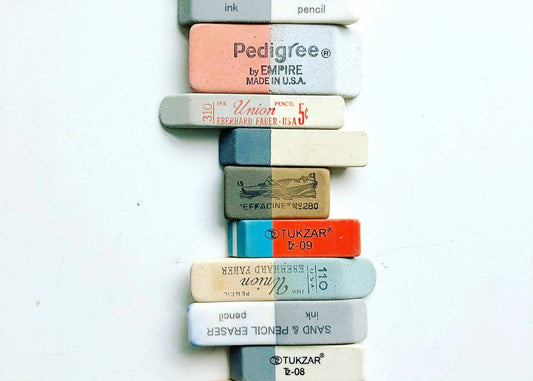 ink pencil
Pedigree®
by EMPIRE
MADE IN U.S.A.
310 INK Union PENCIL 5¢
EBERHARD FABER-USA
"EFFACINE" No280
TUKZAR®
Tz-09
110 U.S.A.
EBERHARD FABER
INK Union PENCIL
SAND & PENCIL ERASER
ink pencil
TUKZAR®
Tz-08